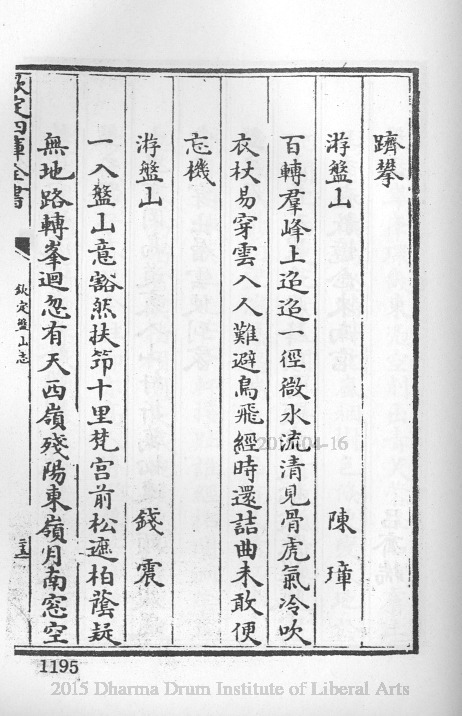 躋攀
游盤山 陳璋
百轉羣峰上迢迢一徑微水流清見骨虎氣冷吹
衣杖易穿雲入人難避鳥飛經時還詰曲未敢便
忘機
游盤山 錢震
一入盤山意豁然扶笻十里梵宫前松遮柏蔭疑
無地路轉峯迴忽有天西嶺殘陽東嶺月南窓空
欽定四庫全書
欽定盤山志
1195
2015-04-16
2015 Dharma Drum Institute of Liberal Arts